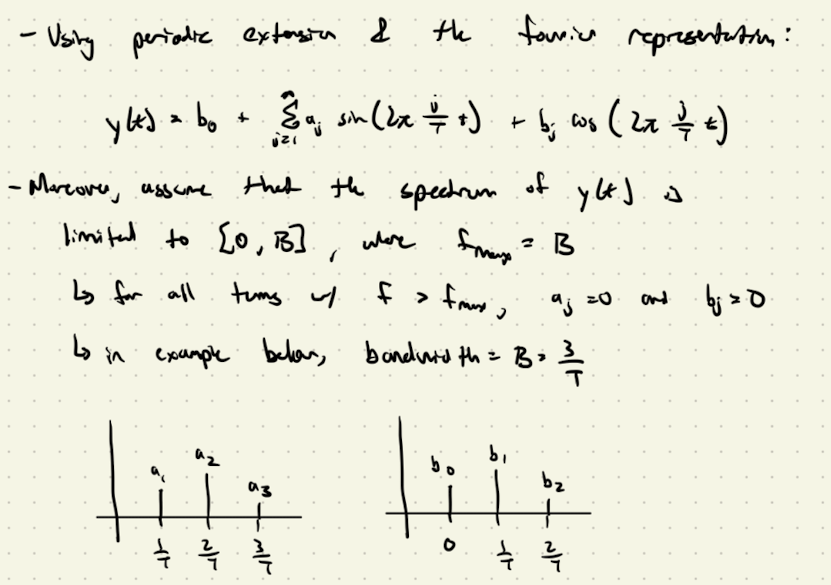 - Using periodic extension & the fourier representation:
y(t) = b₀ + ∑ⁿ_{j=1} a_j sin(2π j/T t) + b_j cos(2π j/T t)
- Moreover, assume that the spectrum of y(t) is
limited to [0, B], where f_max = B
↳ for all terms w/ f > f_max, a_j = 0 and b_j = 0
↳ in example below, bandwidth = B = 3/T
a₁ a₂ a₃
1/T 2/T 3/T
b₀ b₁ b₂
0 1/T 2/T